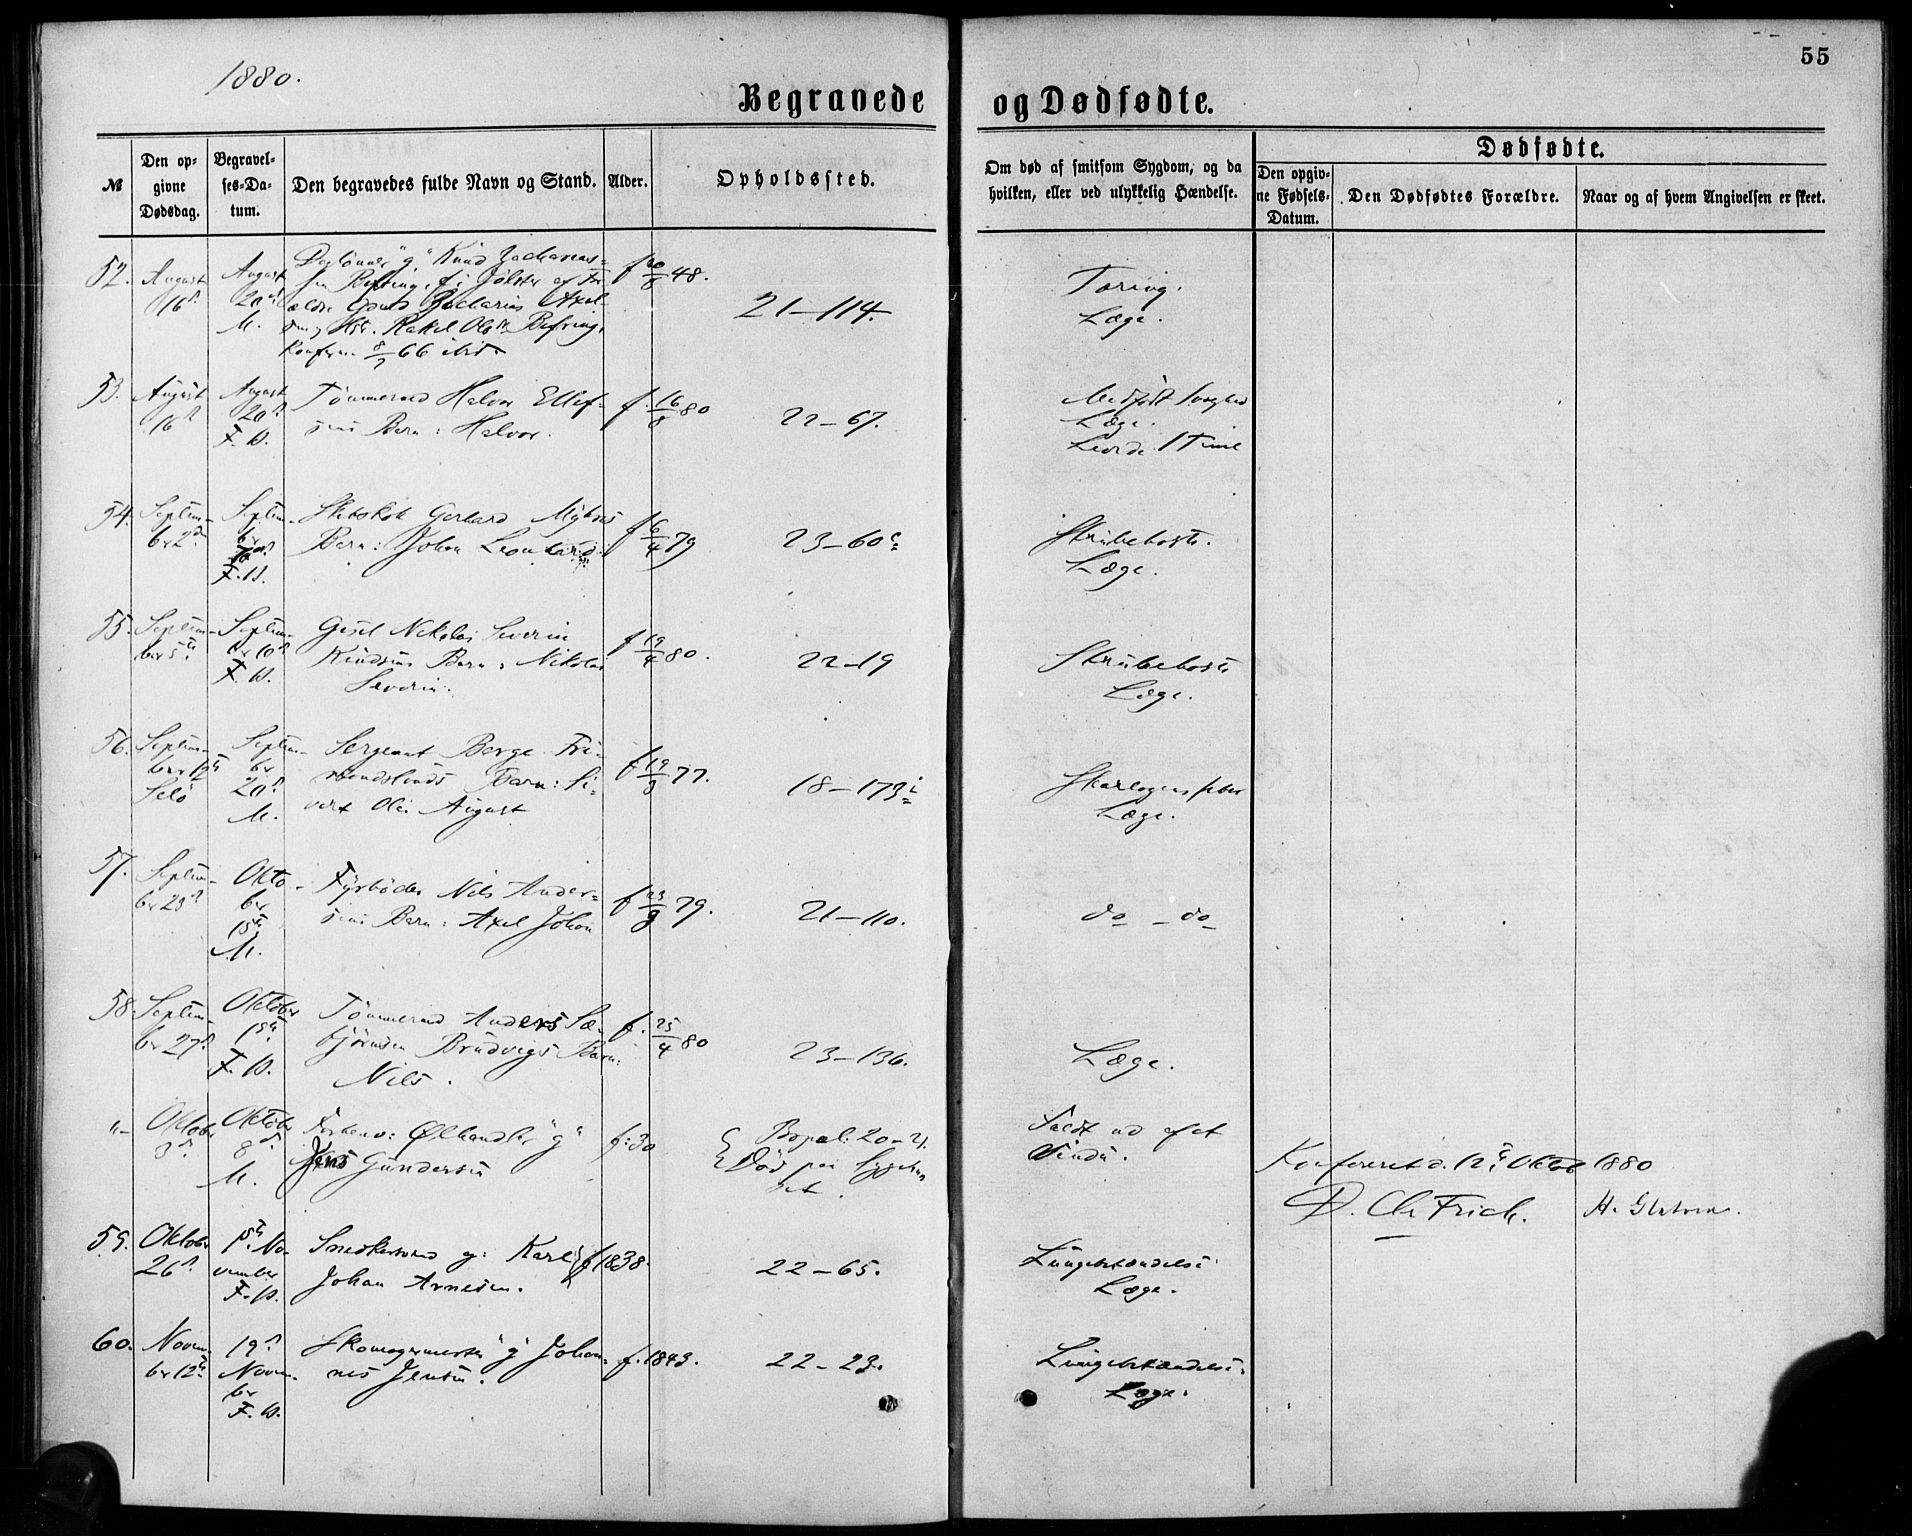 1880.
55
Begravede og Dødfødte.
№
Den opgivne Dødsdag.
Begravelses-Datum.
Den begravedes fulde Navn og Stand.
Alder.
Opholdssted.
Om død af smitsom Sygdom, og da hvilken, eller ved ulykkelig Hændelse.
Dødfødte.
Den opgivne Fødsels-Datum.
Den Dødfødtes Forældre.
Naar og af hvem Angivelsen er skeet.
52. August 16d August 20d M.
"g" Knud Zacharias-
Befring, f i Jølster af For-
ældre Zacharias Axel-
Rakel Befring,
Konfirm. 8/7 66 ibid.
f 20/8 48.
21-114.
Tæring.
Læge.
53. August 16d August 20d F. B.
Tømmermd Halvor Ellef-
sens Barn: Halvor.
f. 16/8 80
22-67.
Medfødt Svaghed
Læge.
Levede 1 Time
54. Septem-
ber 2d Septem-
ber F. B.
Gerhard
Barn: Johan Leonhard.
f 6/4 79
23-60c
Strubehoste.
Læge.
55. Septem-
ber 5te Septem-
ber 10d F. B.
Nikolai Severin
Knudsens Barn: Nikolai
Severin.
f 19/4 80.
22-19
Strubehoste
Læge.
56. Septem-
ber 12te Septem-
ber 20d M.
Sergeant Berge
Barn: Si-
vert Olai August
f 19/3 77.
18-173i
Skarlagensfeber
Læge.
57. Septem-
ber 23d Okto-
ber 15te M.
Fyrbøder Nils Ander-
sens Barn: Axel Johan
f 23/9 79.
21-110.
do - do
58. Septem-
ber 27d Oktober 1ste F. B.
Tømmermd Anders Sæ-
bjørnsen Brudvigs Barn:
Nils.
f. 25/4 80
23-136.
Læge.
"- Oktober 3d Oktober 8d M.
Forhenv: Ølhandler "g"
Jens Gundersen
f: 30
Bopæl: 20-21.
Død paa Sygehu-
set.
Faldt ud af et
Vindu.
Konfereret d. 12te Oktob 1880
D. Chr Frich.
59. Oktober 26d 1ste No-
vember F. B.
Snedkersvend g: Karl
Johan Arnesen.
f 1838.
22-65.
Lungebetændelse
Læge.
60. Novem-
ber 12te 19d
Novem-
ber
F. B.
Skomagermester "g" Johan-
nes Jensen.
f. 1843.
22-23.
Lungebetændelse.
Læge.